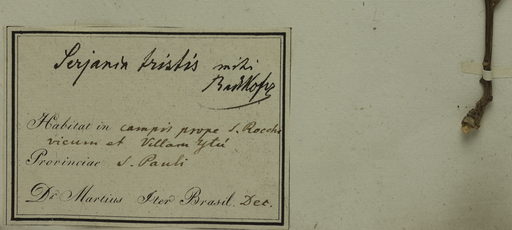 Serjania tristis mihi
Radlkofer
Habitat in campis prope S. Rocche
vicum et Villam Ytú
Provinciae S. Pauli
Dr Martius Iter Brasil. Dec.